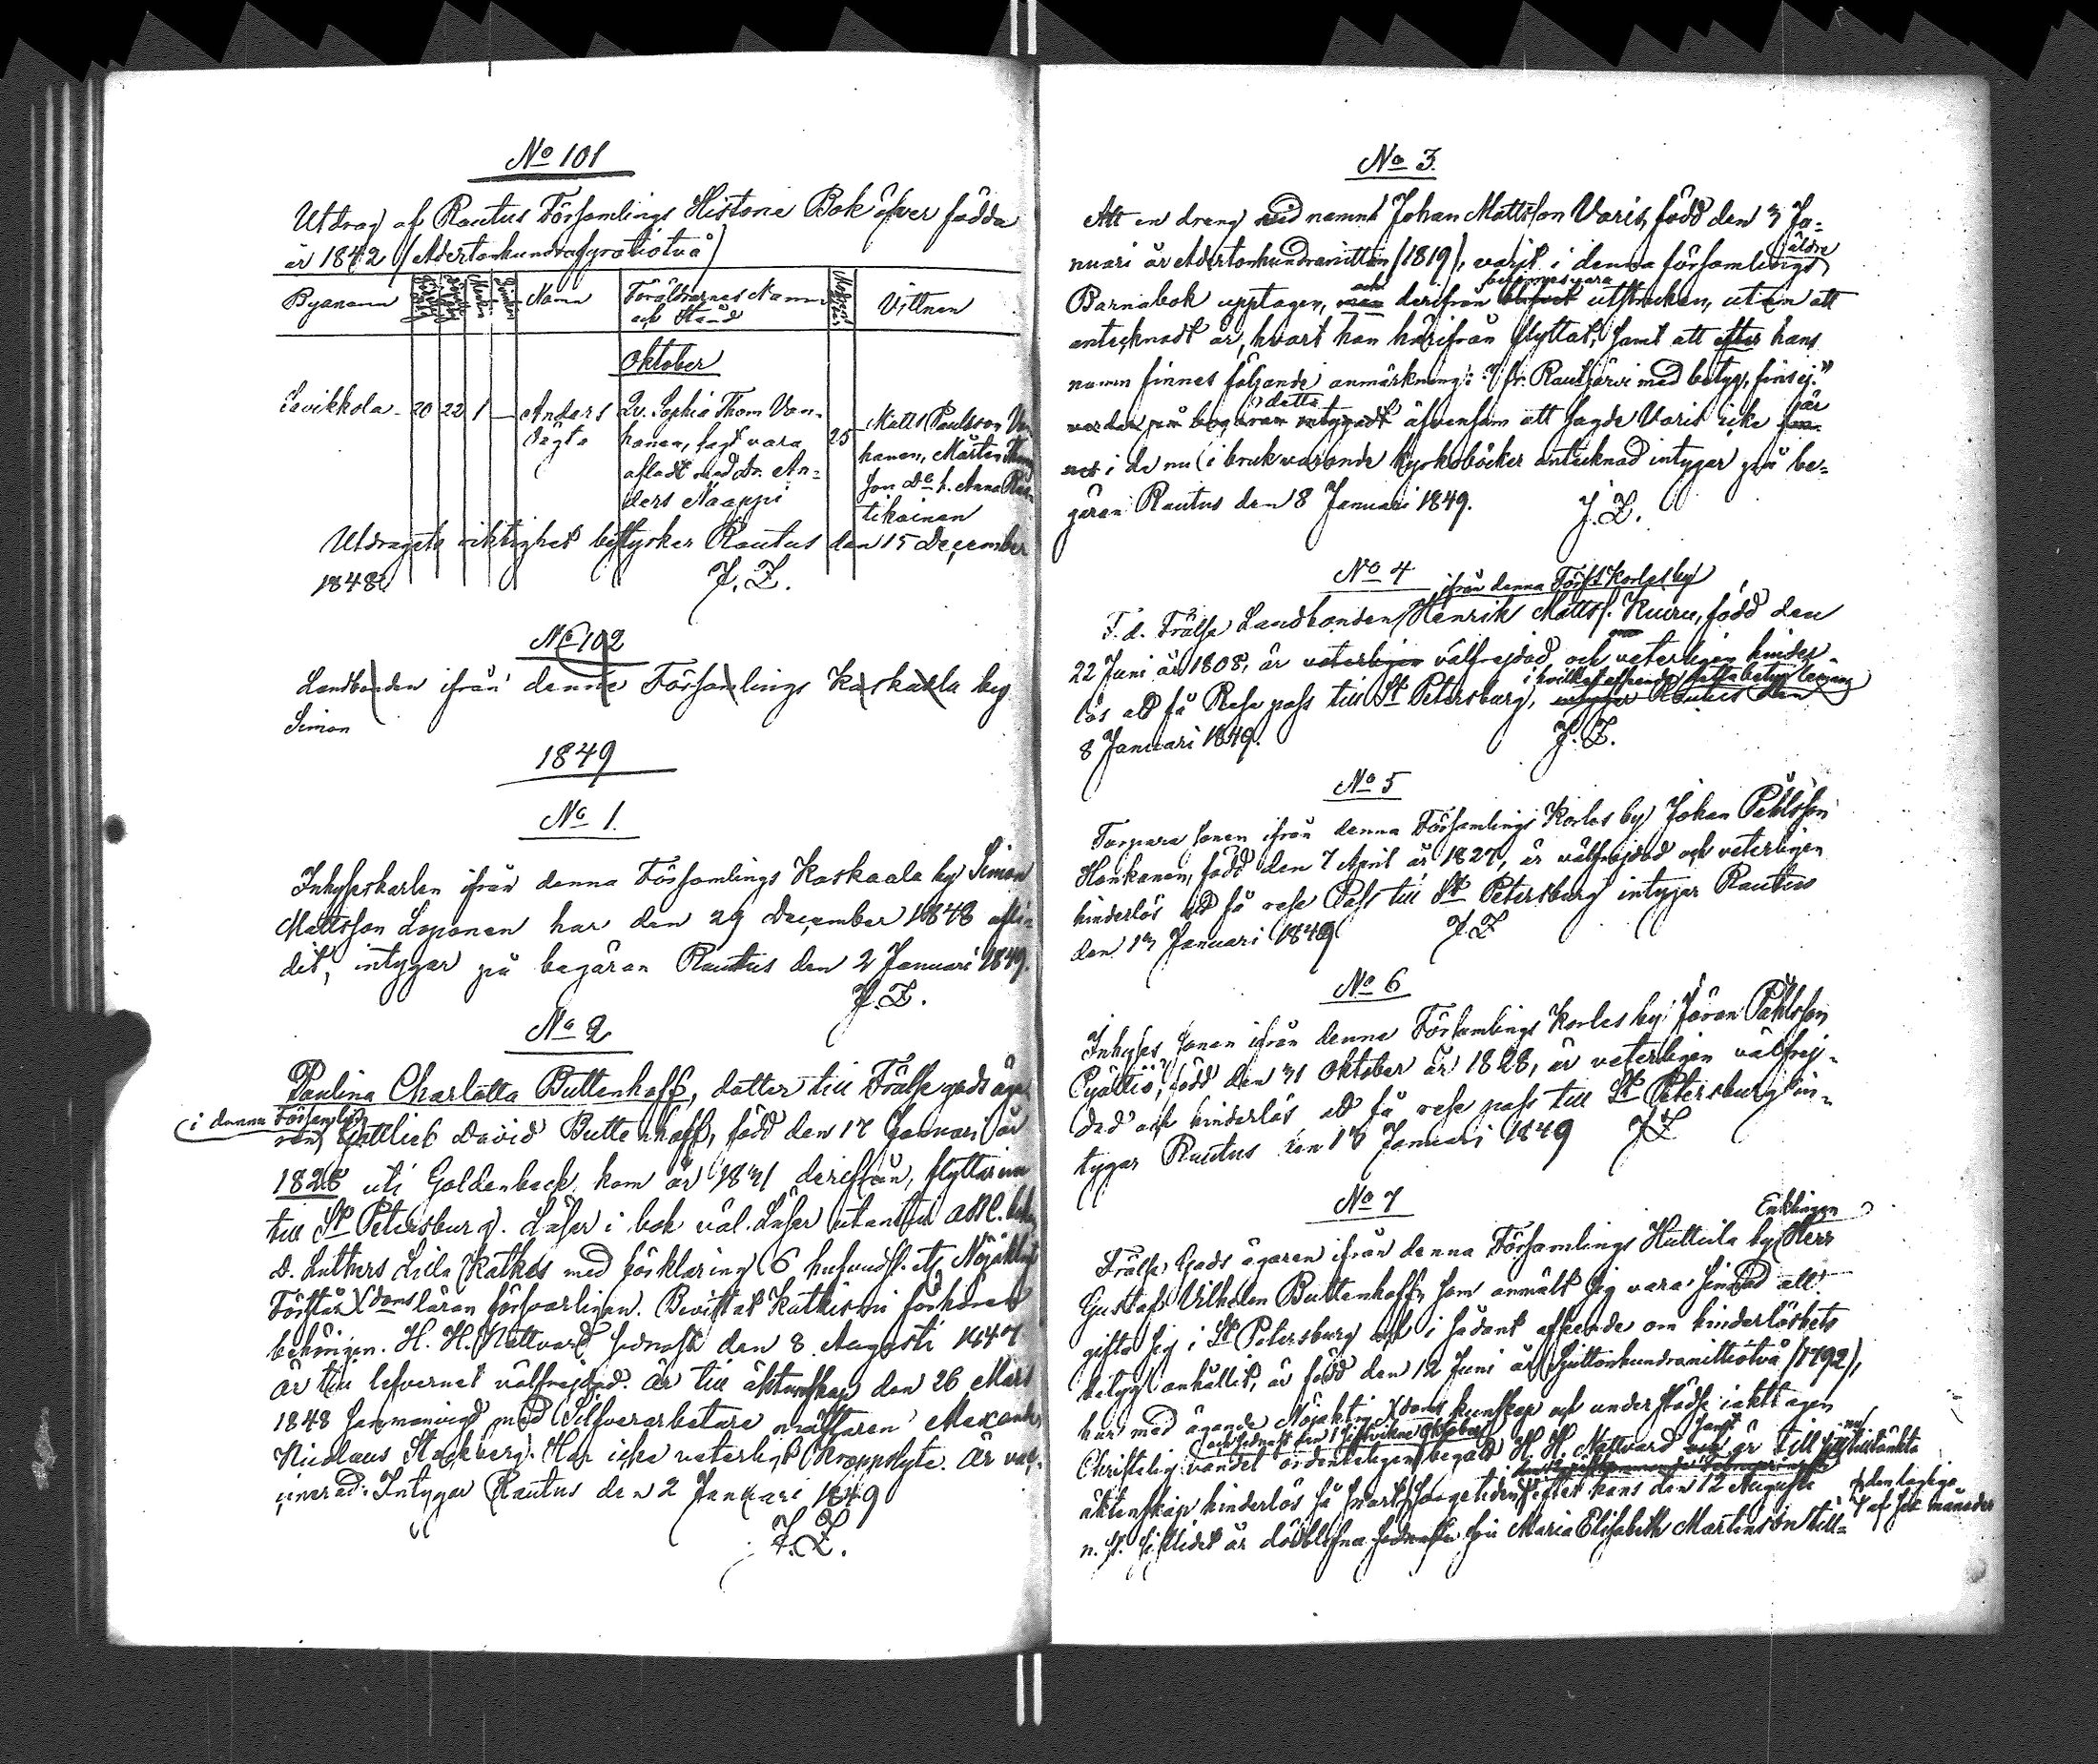 No 101
Utdrag af Rautus Församlings Historie Bok öfver födda
år 1842 (Adertonhundrafyratiotvå)
Byanamn Namn Föräldrarnes Namn och Stånd Vittnen
Oktober
Savikkola 20 22 1 — Anders Qv. Sophia Thom Van- 25 Matts Paulsson Van
oägta hanen, sagt vara hanen, Mårten Thom
aflad med dr. An- son Do h. Anna Ras-
ders Naappi tikainen
Utdragets riktighet bestyrker Rautus den 15 December
1848. J. Z.
No 102
Landbonden ifrån denna Församlings Kaskaala by
Simon
1849
No 1.
Inhyseskarlen ifrån denna Församlings Kaskaala by Simon
Mattsson Loponen har den 29 December 1848 afli-
dit, intygar på begäran Rautus den 2 Januari 1849.
J. Z.
No 2
Paulina Charlotta Buttenhoff, dotter till Frälse gods äga
i denna Församling
ren Gottlieb David Buttenhoff, född den 17 Januari år
1828 uti Goldenbeck, kom år 1831 derifrån, flyttar nu
till St Petersburg. Läser i bok väl. Läser utantill ABC. bok
D. Luthers Lilla Kathes med förklaring 6 hufvudst. etc Nöjaktigt
Förstår Xdoms läran försvarligen. Bevistat Kathismi förhören
behörigen. H. H. Nattvard sednast den 8 Augusti 1847
Är till lefvernet välfrejdad. Är till äktenskap den 26 Mars
1848 sammanvigd med Silfverarbetare mästaren Alexander
Nicolaus Stackberg. Har icke veterligt Kroppslyte. Är vac-
cinerad. Intygar Rautus den 2 Januari 1849
J. Z.
No 3.
Att en dreng vid namn Johan Mattsson Varis, född den 3 Ja-
nuari år Adertonhundranitton (1819), varit i denna församlings
äldre
Barnabok upptagen, och derifrån utstruken, utan att
antecknadt är, hvart han härifrån flyttat, samt att efter hans
namn finnes följande anmärkning: "fr. Rautjärvi med betyg, fins ej."
detta
äfvensom att sagde Varis icke är
i de nu i bruk varande kyrkoböcker antecknad intygar på be-
gäran Rautus den 8 Januari 1849. J. Z.
No 4
ifrån denna Förs. Korles by
F. d. Frälse Landbonden Henrik Mattss. Kuiru, född den
22 Juni år 1808, är veterligen välfrejdad och veterligen hinder-
i hvilket afseende detta betyg lemnas
lös att få Rese pass till St Petersburg, intygar Rautus den
8 Januari 1849. J. Z.
No 5
Torpare sonen ifrån denna Församlings Korles by Johan Påhlsson
Honkanen, född den 7 April år 1827, är välfrejdad och veterligen
hinderlös att få rese Pass till St Petersburg intygar Rautus
den 13 Januari 1849 J. Z
No 6
Inhyses sonen ifrån denna Församlings Korles by Jöran Påhlsson
Pyältiö, född den 31 Oktober år 1828, är veterligen välfrej-
dad och hinderlös att få rese pass till St Petersburg in-
tygar Rautus den 13 Januari 1849 J Z
No 7
Enklingen
Frälse Gods ägaren ifrån denna Församlings Huttula by Herr
Gustaf Vilhelm Buttenhoff, som anmält sig vara sinnad att
gifta sig i St Petersburg och i sådant afseende om hinderlöshets
betyg anhållit, är född den 12 Juni år Sjuttonhundranittiotvå (1792),
har med ägande Nöjaktig Xdoms kunskap och under städse iakttagen
och sednast den 1 sistvikne Oktober
Christelig vandel ordenteligen begått H. H. Nattvard samt är till nu tilltänkta
äktenskap hinderlös så snart sorgetiden efter hans den 12 Augusti
den laglige
af sex månader
n. st. sistlidet år dödblefna fru Maria Elisabeth Martinson till-